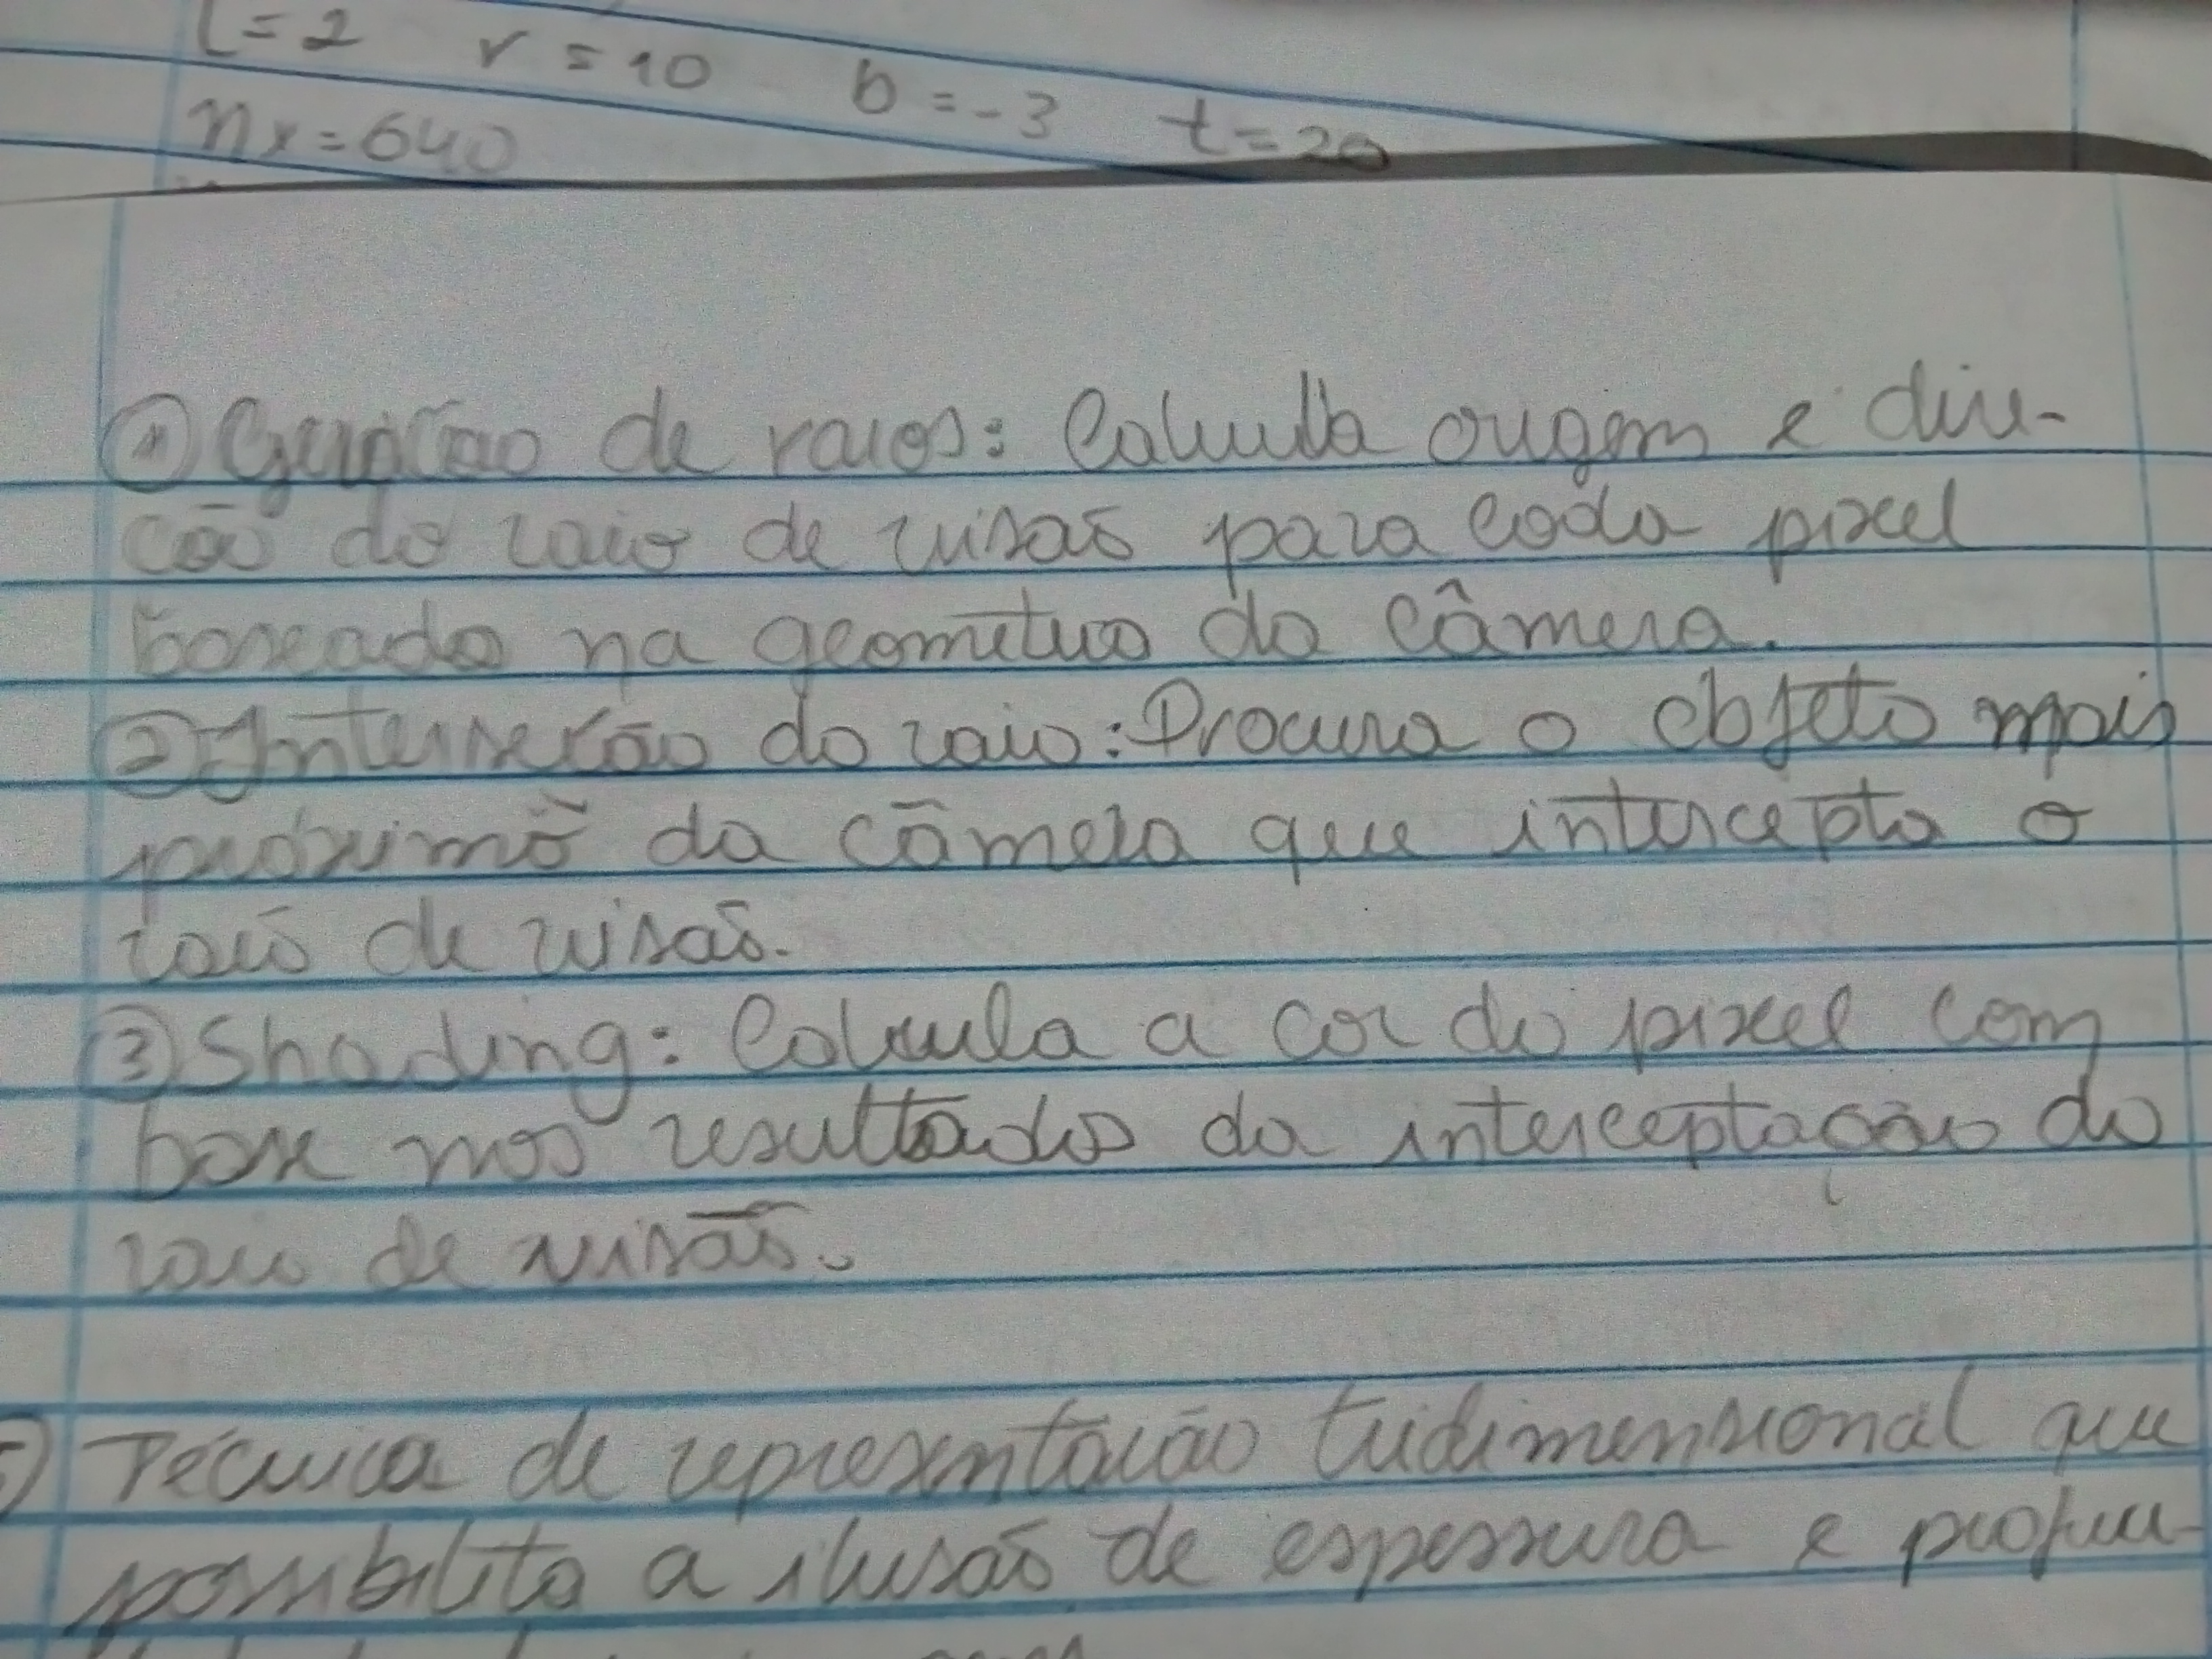 l=2 r=10 b=-3 t=20
nx=640
① Geração de raios: Calcula origem e dire-
ção do raio de visão para cada pixel
baseado na geometria da câmera.
② Interseção do raio: Procura o objeto mais
próximo da câmera que intercepta o
raio de visão.
③ Shading: Calcula a cor do pixel com
base nos resultados da interceptação do
raio de visão.
Técnica de representação tridimensional que
possibilita a ilusão de espessura e profun-